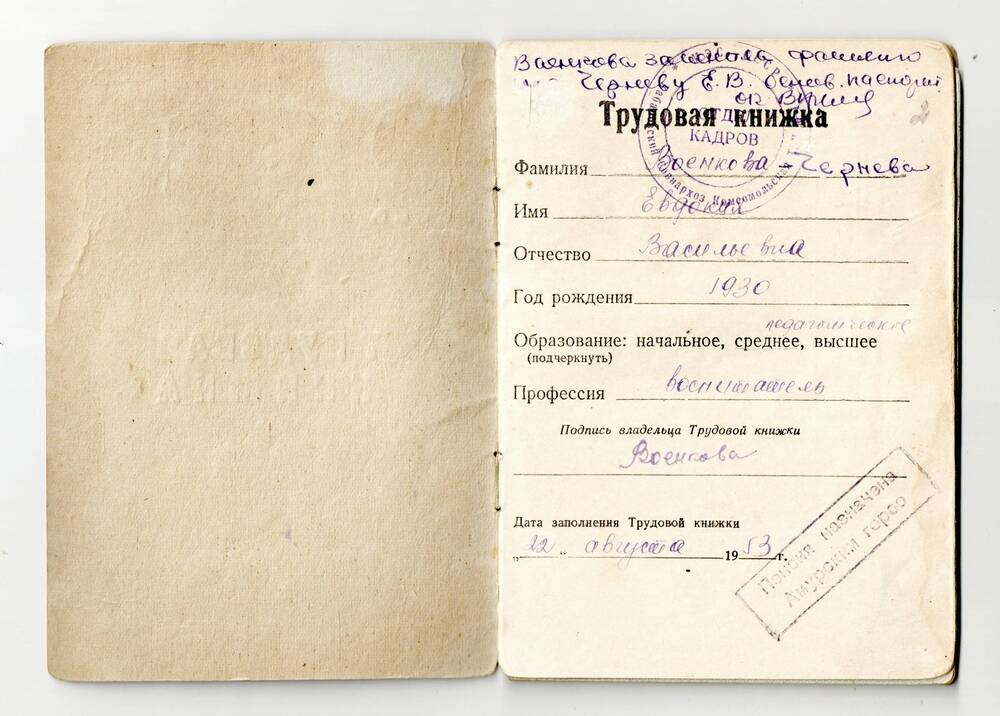 Военкова фамилию
Черневу Е. В. Основ. паспорт
Трудовая книжка
ОТДЕЛ
КАДРОВ
Фамилия Военкова - Чернева
Имя Евдокия
Отчество Васильевна
Год рождения 1930
педагогическое
Образование: начальное, среднее, высшее
(подчеркнуть)
Профессия воспитатель
Подпись владельца Трудовой книжки
Военкова
Дата заполнения Трудовой книжки
„22“ августа 1953 г.
Пенсия назначена
Амурским горсо